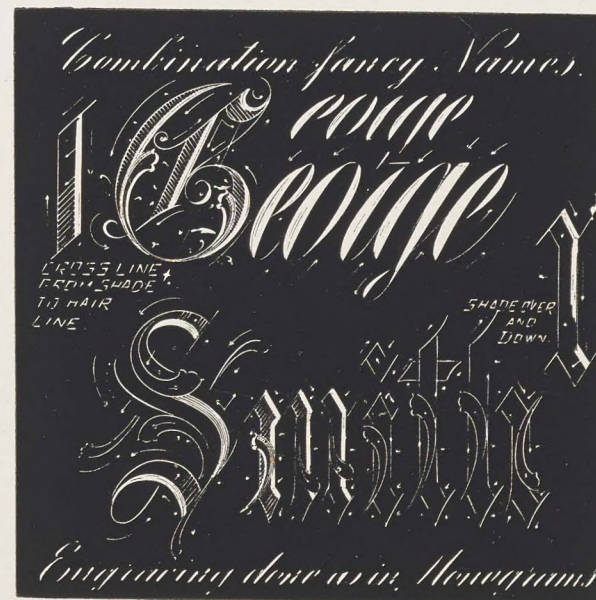 Combination fancy Names.
eorge
George
CROSS LINE
FROM SHADE
TO HAIR
LINE
SHADE OVER
AND
DOWN.
Smith
Engraving done as in Monograms